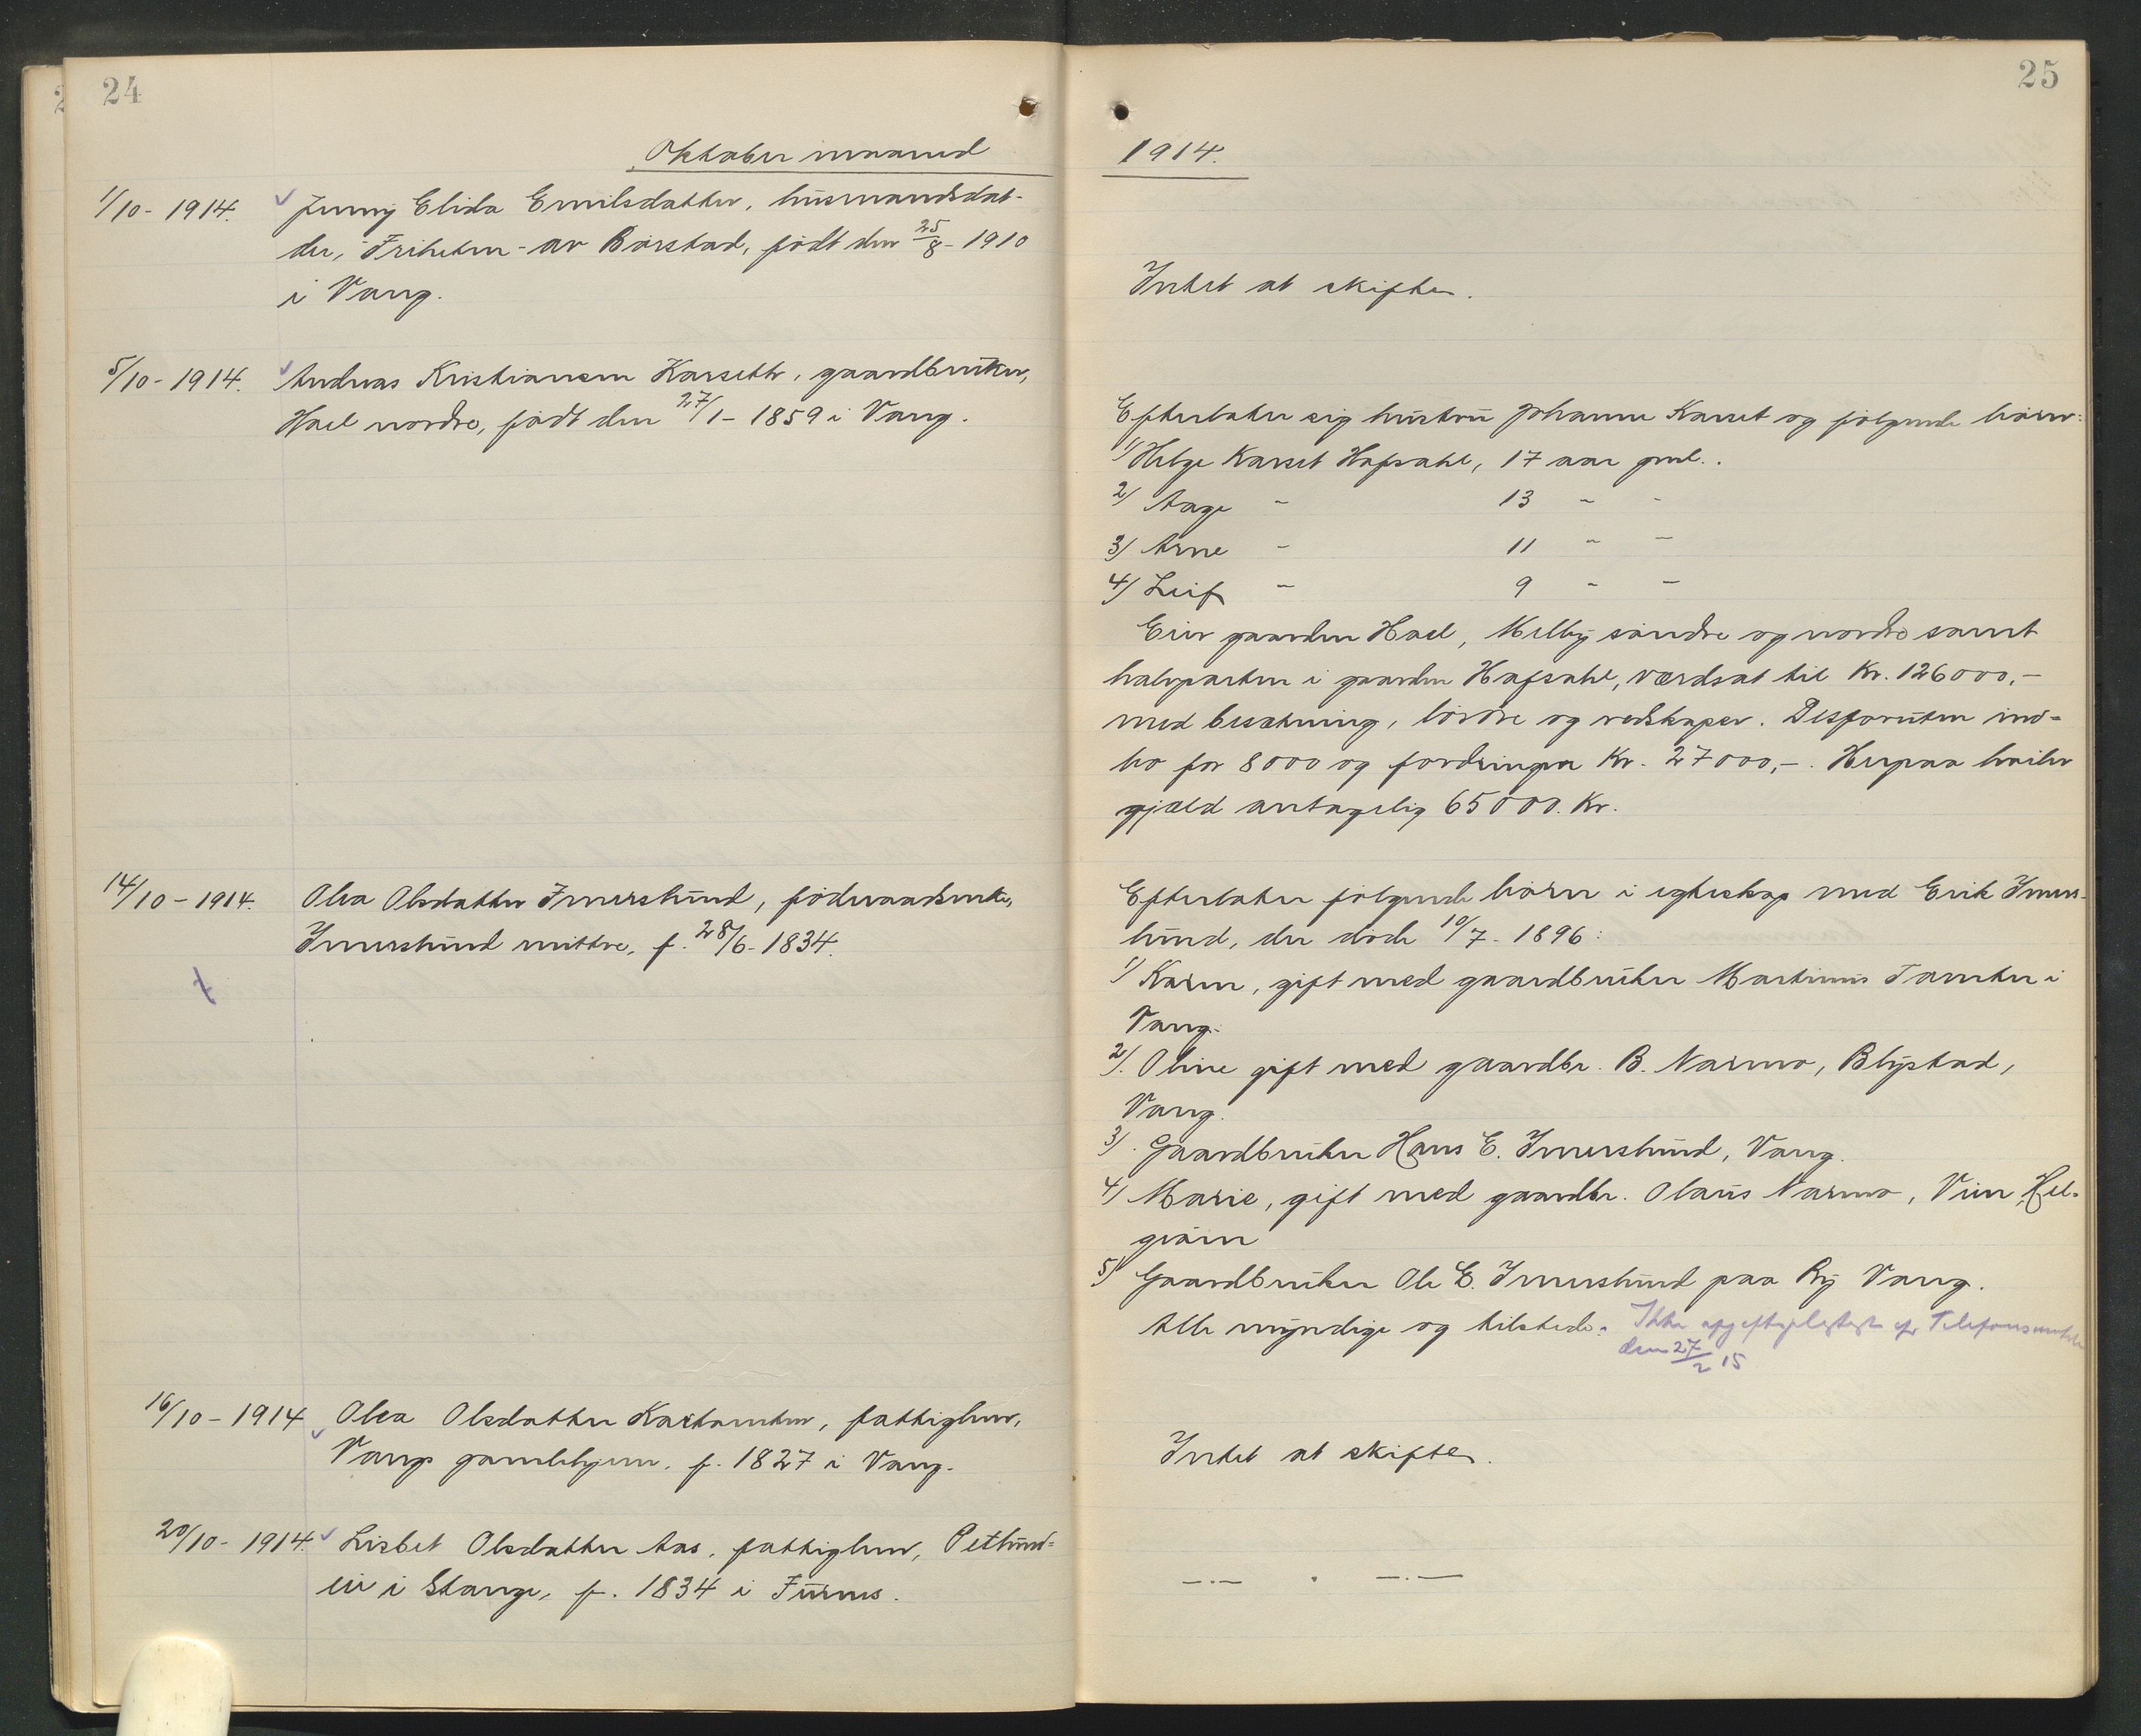 24
Oktober maaned
1/10 - 1914. Jenny Elida Emilsdatter, husmandsdat-
der, Friheten - av Børstad, født den 25/8 - 1910
i Vang.
5/10 - 1914. Andreas Kristiansen Karset, gaardbruker,
Hoel nordre, født den 27/1 - 1859 i Vang.
14/10 - 1914. Olea Olsdatter Imerslund, føderaadsenke,
Imerslund mittre, f. 28/6 - 1834.
16/10 - 1914 Olea Olsdatter Kartomten, fattiglem,
Vangs gamlehjem, f. 1827 i Vang.
20/10 - 1914. Lisbet Olsdatter Aas, fattiglem,
i Stange, f. 1834 i Furnes.
25
1914.
Intet at skifte.
Efterlater sig hustru Johanne Karset og følgende børn:
1/ Helge Karset Hafsahl, 17 aar gml..
2/ Aage - 13 - -
3/ Arne - 11 - -
4/ Leif - 9 - -
Eier gaarden Hoel, Melby søndre og nordre samt
halvparten i gaarden Hafsahl, værdsat til Kr. 126000,-
med besætning, løsøre og redskaper. Desforuten ind-
bo for 8000 og fordringer Kr. 27000,-. Herpaa hviler
gjæld antagelig 65000. Kr.
Efterlater følgende børn i egteskap med Erik Imers-
lund, der døde 10/7 - 1896:
1/ Karen, gift med gaardbruker Martinus Tomter i
Vang.
2/. Oline gift med gaardbr. B. Narmo, Blystad,
Vang.
3/. Gaardbruker Hans E. Imerslund, Vang.
4/ Marie, gift med gaardbr. Olaus Narmo, Vien, Hel-
gøien
5/ Gaardbruker Ole E. Imerslund paa Ry Vang.
Alle myndige og tilstede. Ikke
den 27/2 15
Intet at skifte.
—·— · —·—